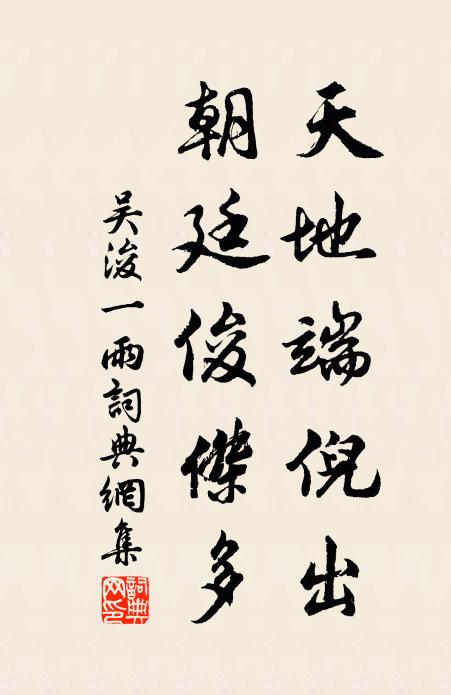 天地端倪出
朝廷俊傑多
吴浚一雨詞典網集
詞典網印